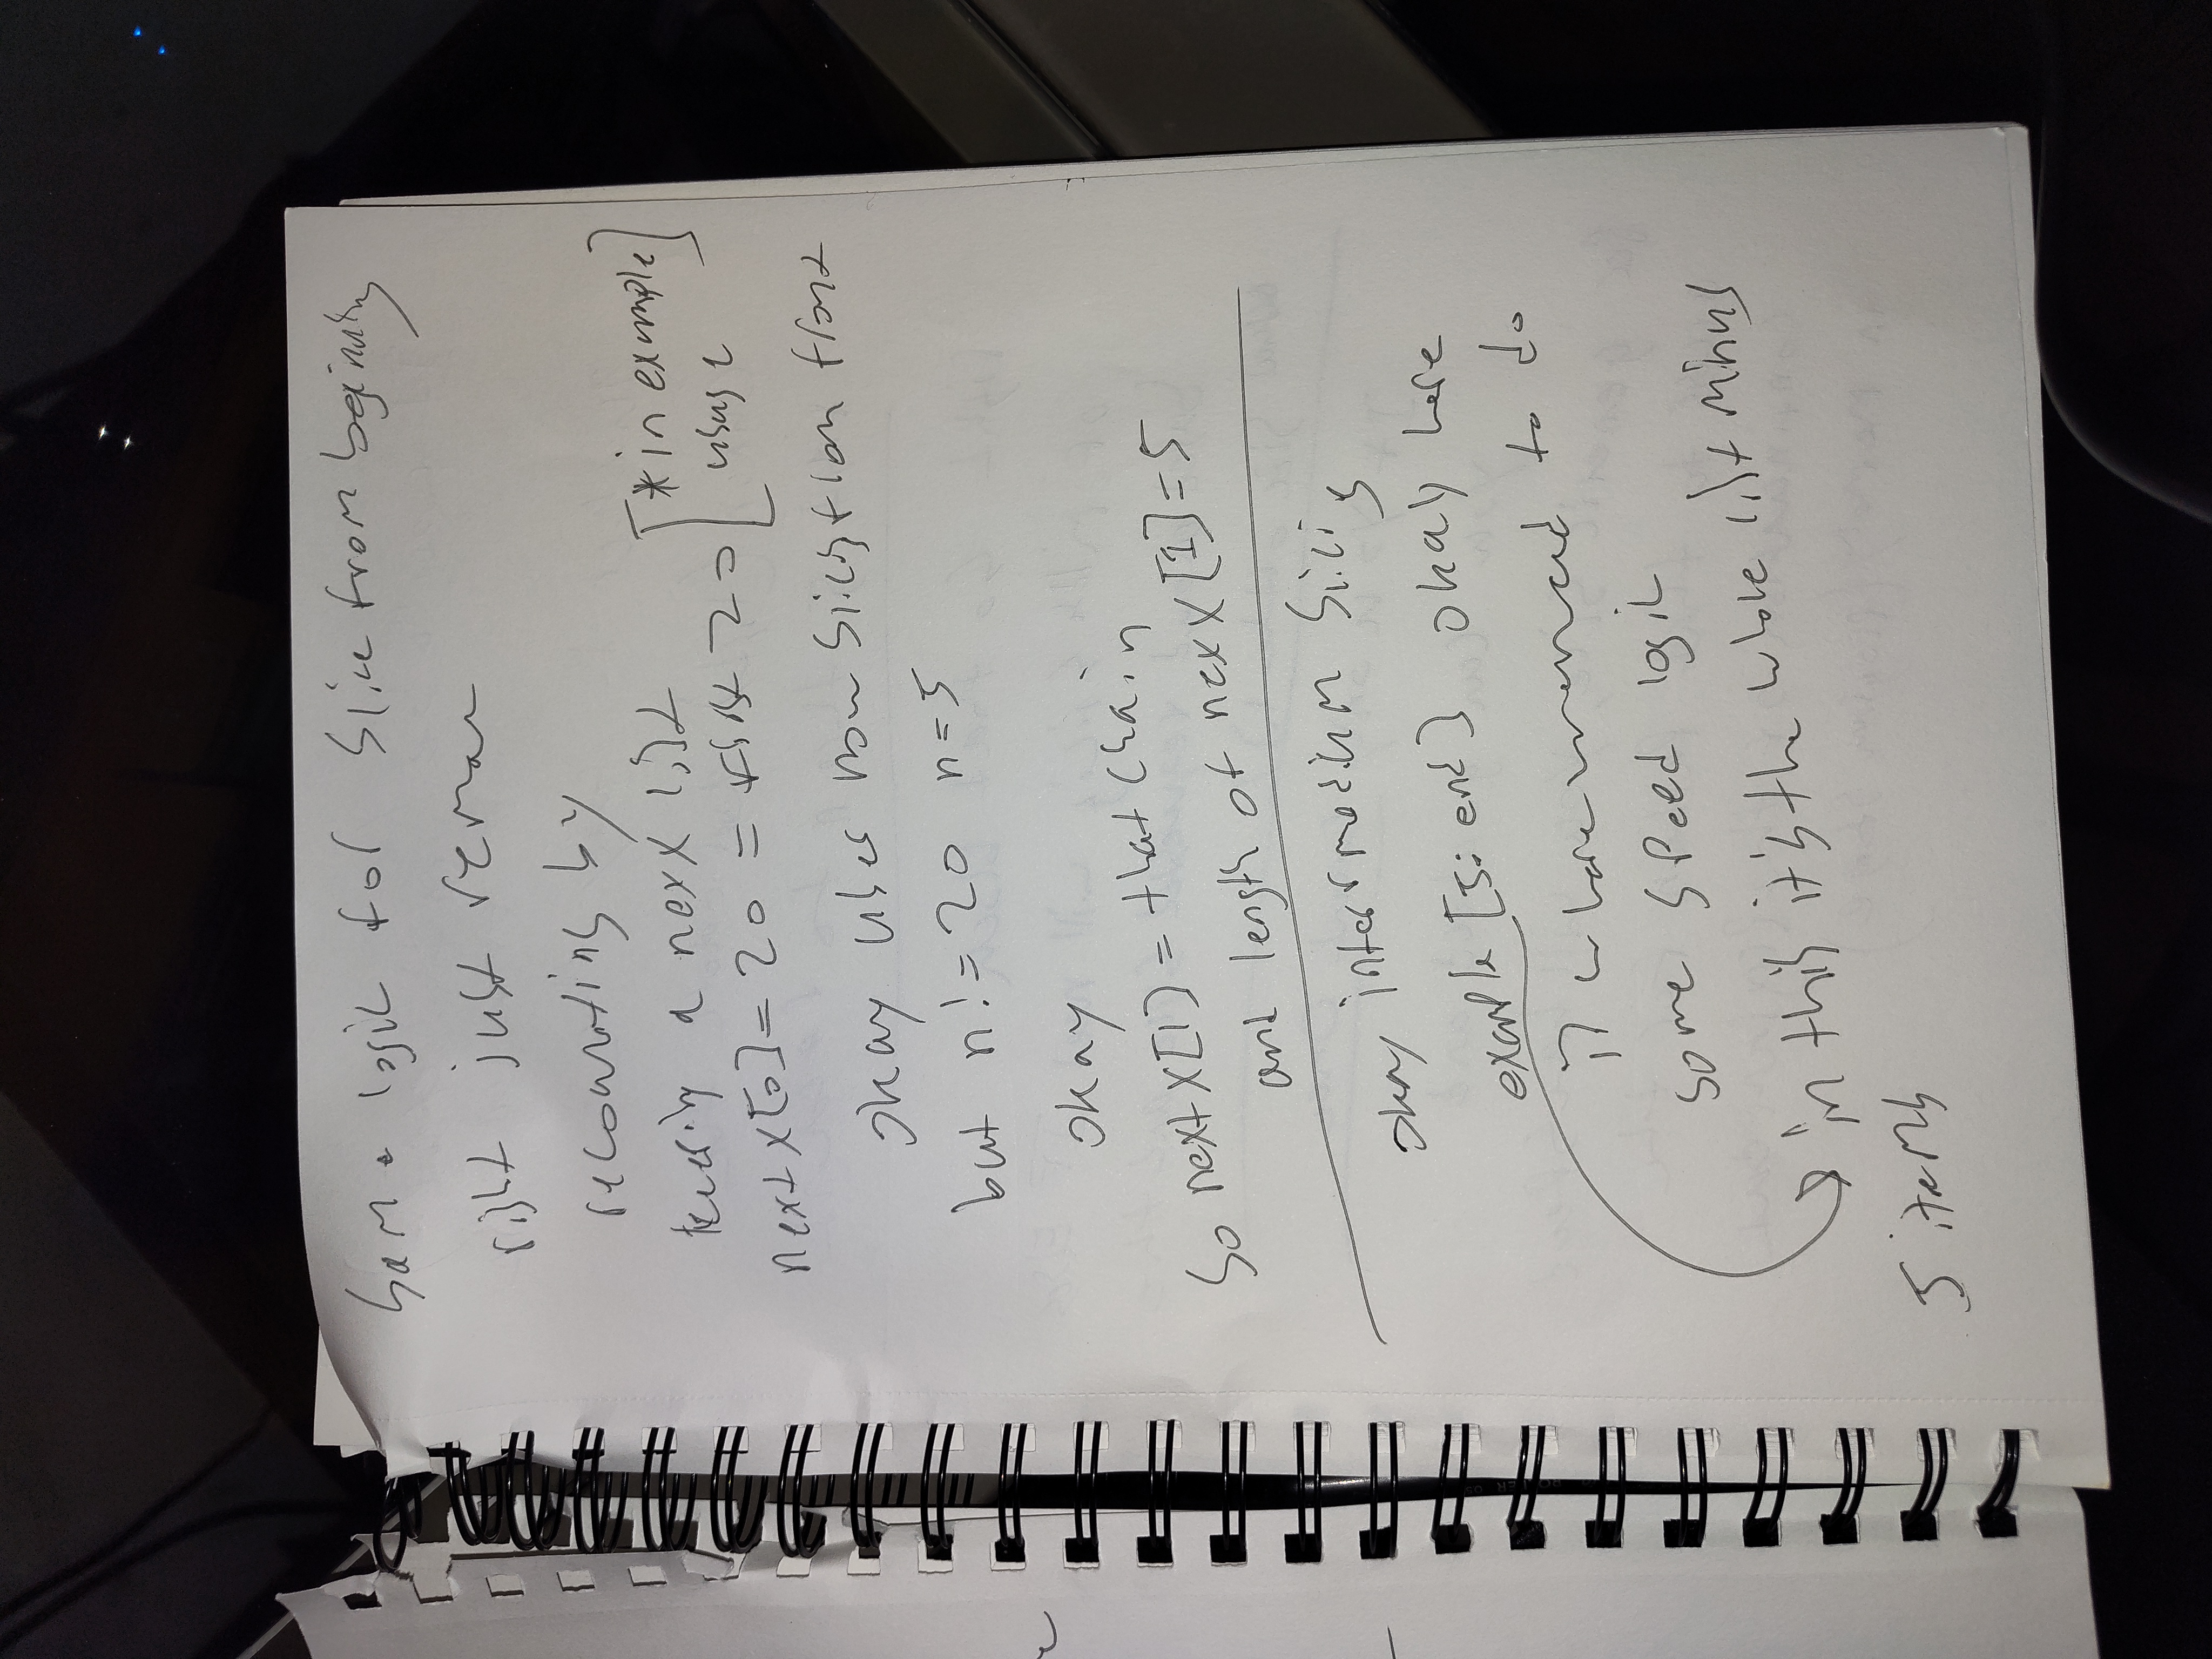 Same logic for slice from beginning
right just
recounting by
a nextX list
nextX[0] = 20 = first 20 [*in example usage]
okay user now slicing from front
but n != 20 n=5
okay
So nextX[1] = that chain
and length of nextX[1] = 5
okay intermedium slicing
example [5:end] okay here
if to do
some speed logic
in this it's the whole list minus
5 items